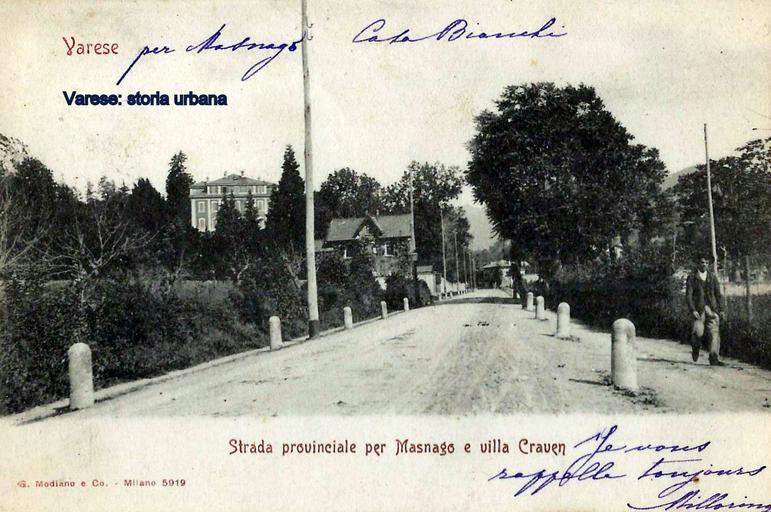 Varese per Masnago Casa Bianchi
Varese: storia urbana
Strada provinciale per Masnago e villa Craven
Je vous
rappelle toujours
G. Modiano e Co. - Milano 5919